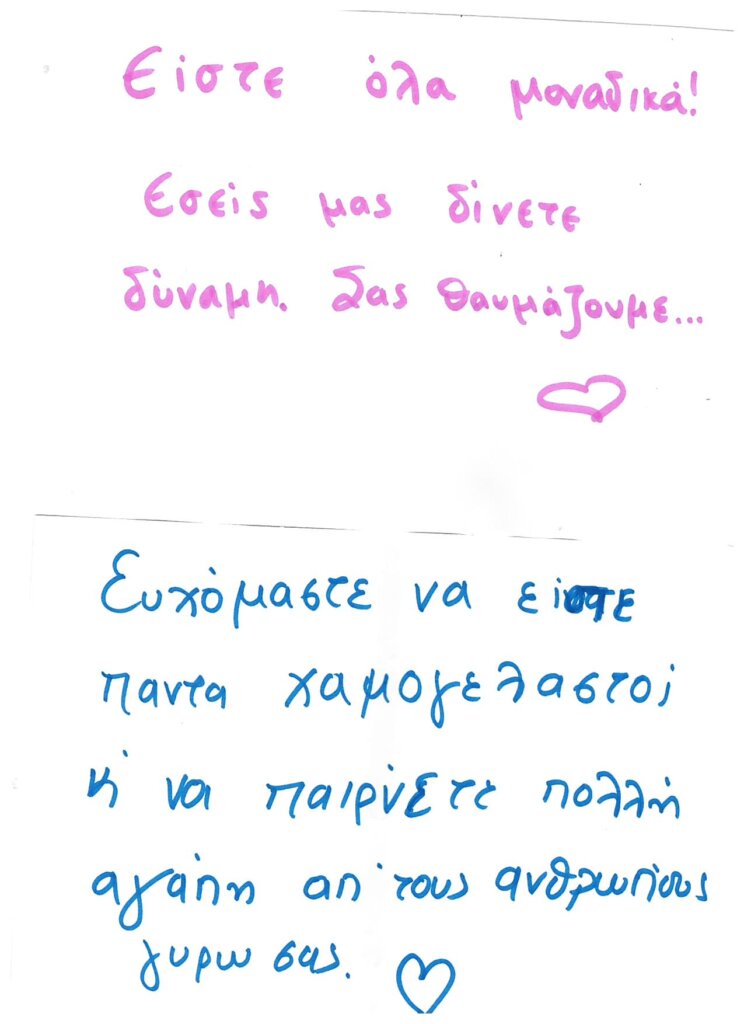 Είστε όλα μοναδικά!
Εσείς μας δίνετε
δύναμη. Σας θαυμάζουμε...
Ευχόμαστε να είστε
παντα χαμογελαστοι
κ' να παιρνετε πολλή
αγάπη απ' τους ανθρωπους
γυρω σας.